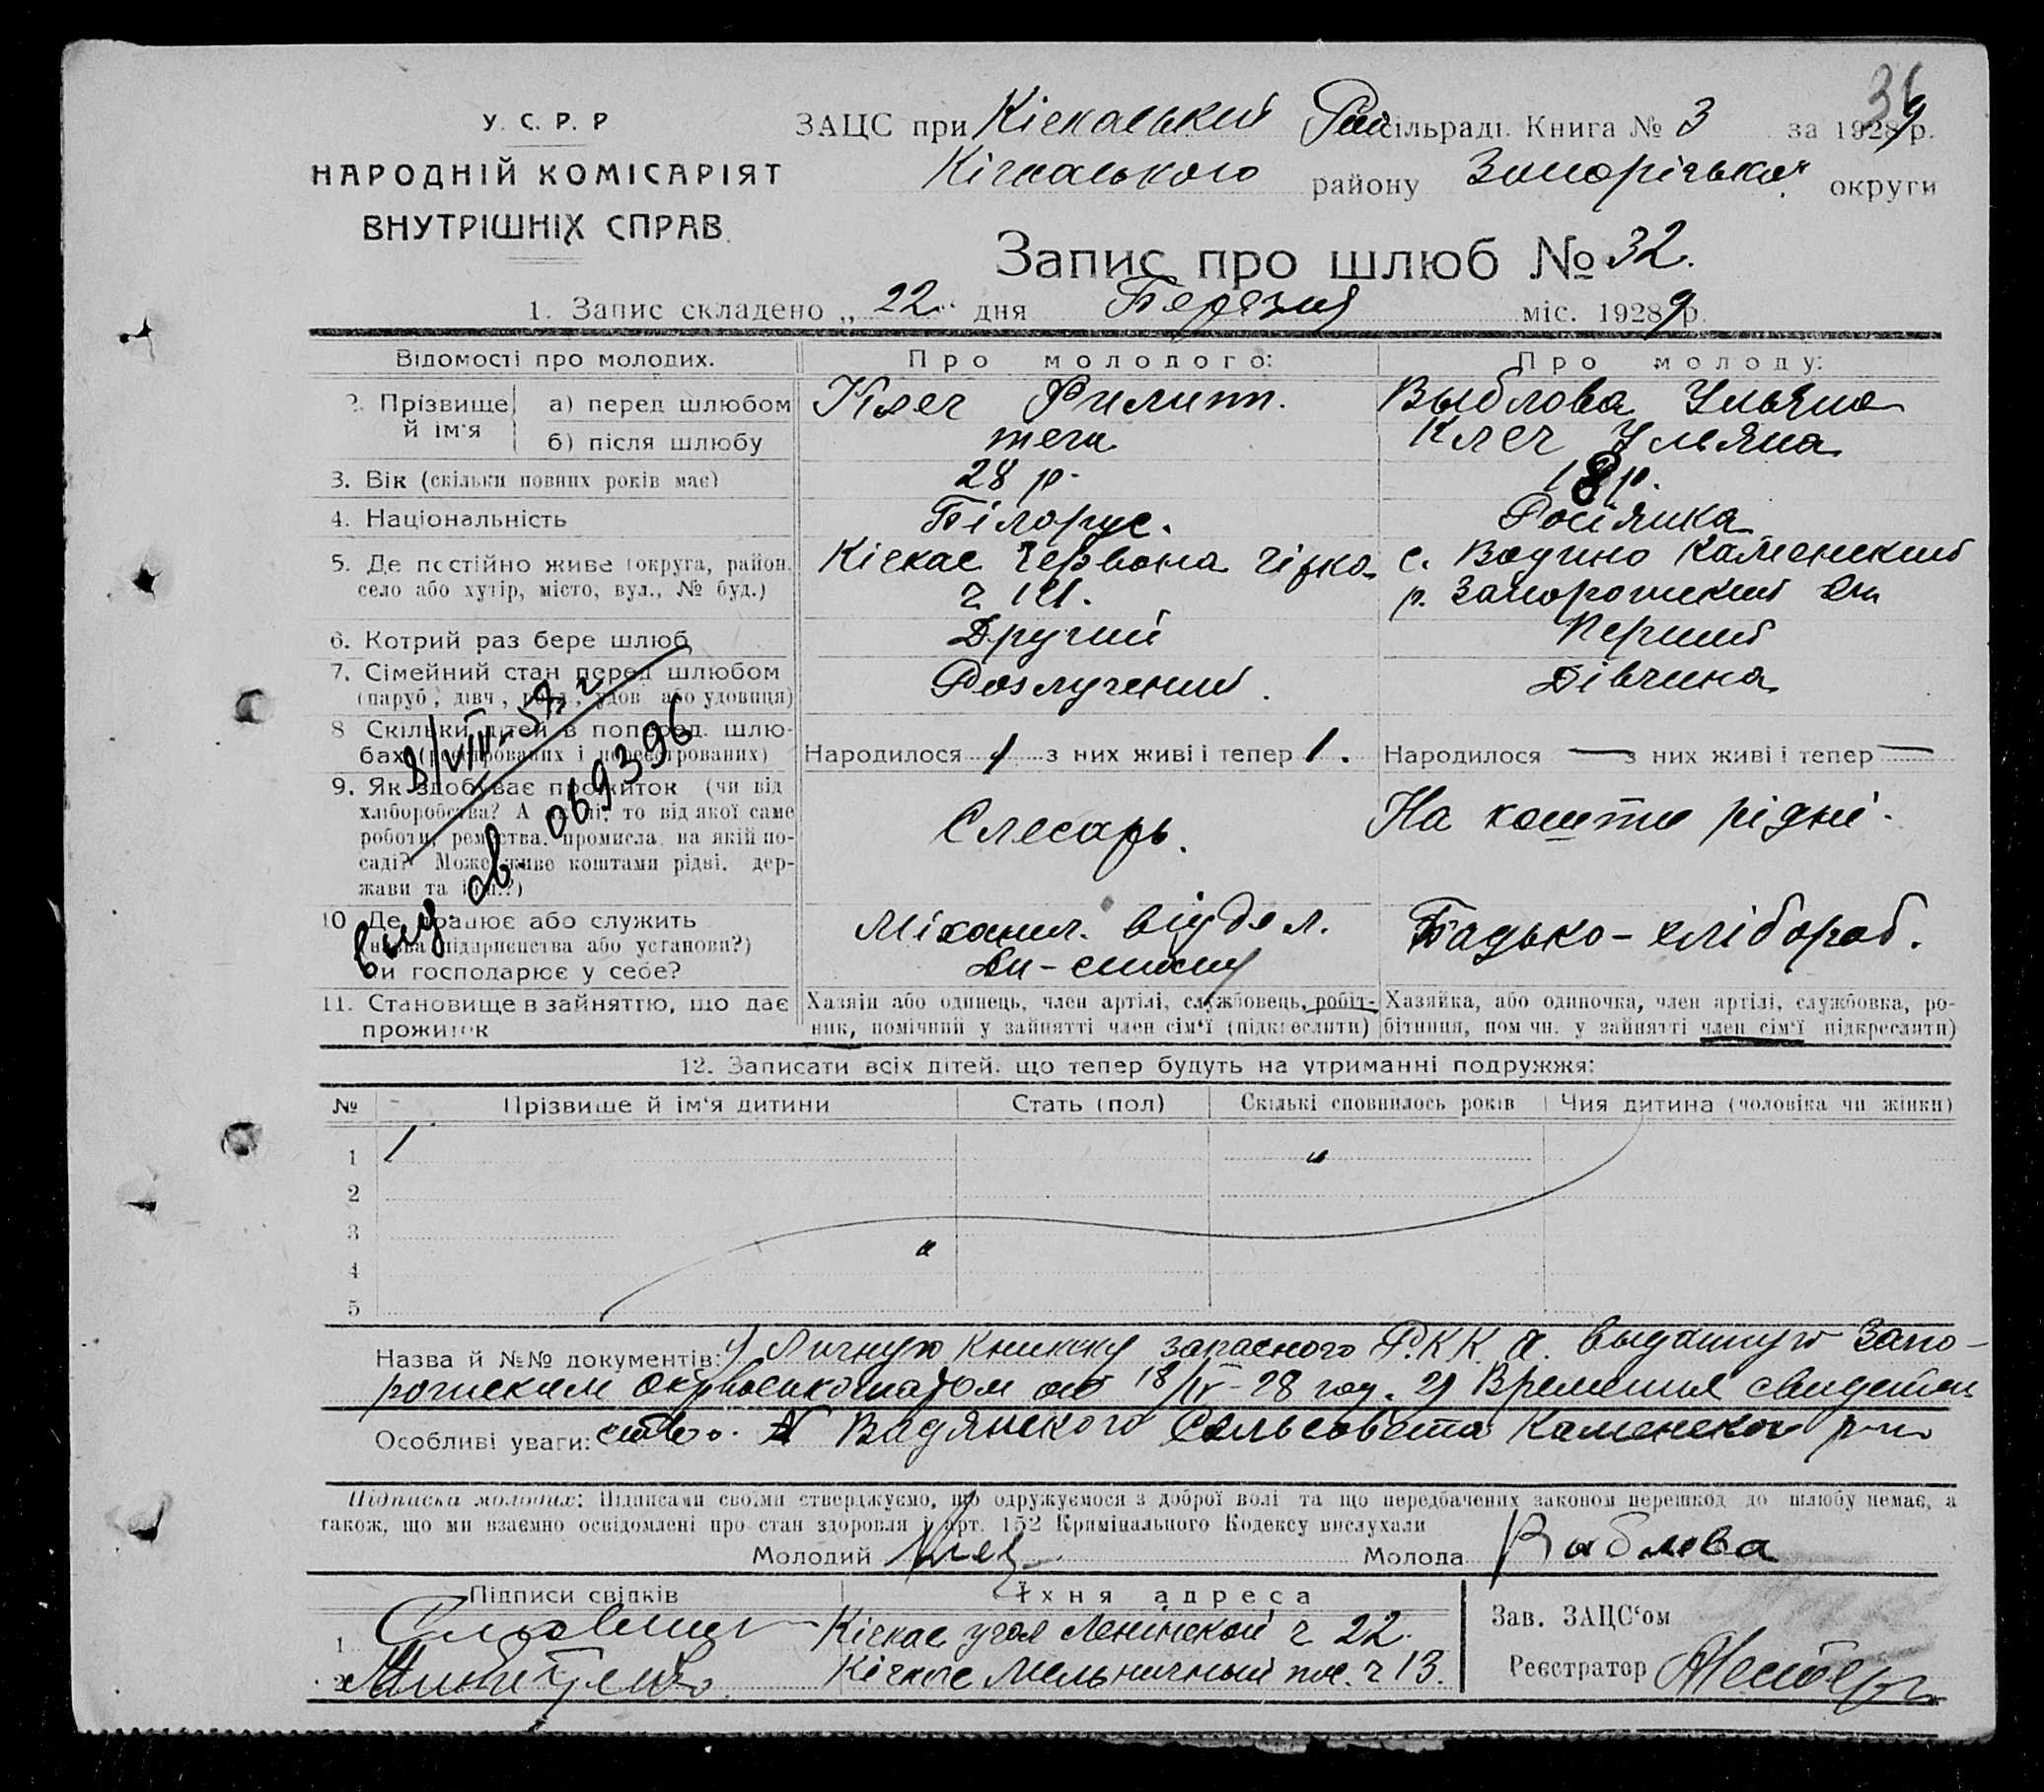 36
У. С. Р. Р
НАРОДНІЙ КОМІСАРІЯТ
ВНУТРІШНІХ СПРАВ.
ЗАЦС при Кічкаський сільраді. Книга № 3 за 1929 р.
Кічкаського району Запорізької округи
Запис про шлюб № 32.
1. Запис складено „22" дня Березня міс. 1929 р.
Відомості про молодих. Про молодого: Про молоду:
2. Прізвище й ім'я а) перед шлюбом Клеч Филипп. Выблова Ульяна
б) після шлюбу теж Клеч Ульяна
3. Вік (скільки повних років має) 28 р. 18 р.
4. Національність Білорус. Росіянка
5. Де постійно живе (округа, район, Кічкас Червона гірка с. Водино Каменский
село або хутір, місто, вул., № буд.) р. Запорожский
6. Котрий раз бере шлюб Другий Перший
7. Сімейний стан перед шлюбом Розлучений. Дівчина
(паруб., дівч., розл., удов. або удовиця)
8 Скільки дітей в поперед. шлю-
бах (реєстрованих і нереєстрованих) Народилося 1 з них живі і тепер 1. Народилося — з них живі і тепер —
9. Як здобуває прожиток (чи від
хліборобства? А як ні, то від якої саме
роботи, ремества, промисла, на якій по-
саді? Може живе коштами рідні, дер-
жави та інш.?)
Слесарь. На кошти рідні.
10 Де працює або служить
(назва підприємства або установи?)
Чи господарює у себе?
Міханич. віддел. Батько – хлібороб.
8/VIII-57 г
выд. 069396
11. Становище в зайняттю, що дає Хазяїн або одинець, член артілі, службовець, робіт- Хазяйка, або одиночка, член артілі, службовка, ро-
прожиток ник, помічний у зайнятті член сім'ї (підкреслити) бітниця, пом чн. у зайнятті член сім'ї підкреслити)
12. Записати всіх дітей, що тепер будуть на утриманні подружжя:
№ Прізвище й ім'я дитини Стать (пол) Скількі сповнилось років Чия дитина (чоловіка чи жінки)
1
2
3
4
5
Назва й №№ документів: 1) Личную книжку запасного Р.К.К.А. выданную Запо-
рожским Окрвоенкоматом от 18/IV-28 год. 2) Времення свидетель
Особливі уваги: ство. Вадянского Сельсовета Каменского р-на
Підписка молодих: Підписами своїми стверджуємо, що одружуємося з доброї волі та що передбачених законом перешкод до шлюбу немає, а
також, що ми взаємно освідомлені про стан здоровля і арт. 152 Кримінального Кодексу вислухали
Молодий Клеч Молода Выблова
Підписи свідків Їхня адреса
1 Кічкас угол Ленінской ч 22.
2 Кічкас Мельничный пос. ч 13.
Зав. ЗАЦС'ом
Реєстратор